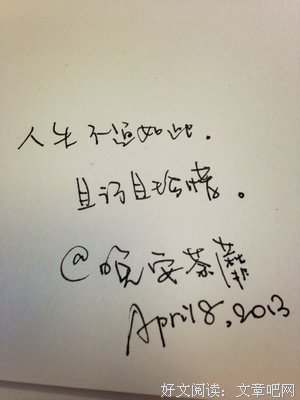 人生不过如此.
且行且珍惜。
@晚安茶蘼
April 8, 2013
好文阅读：文章吧网